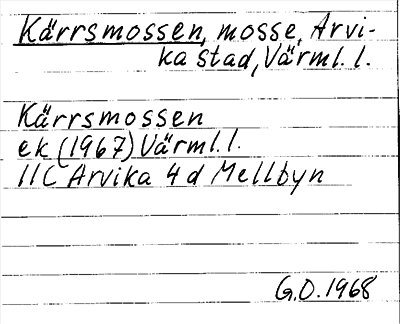 Kärrsmossen, mosse, Arvi-
ka stad, Värml. l.
Kärrsmossen
ek (1967) Värml. l.
11C Arvika 4 d Mellbyn
G.O. 1968